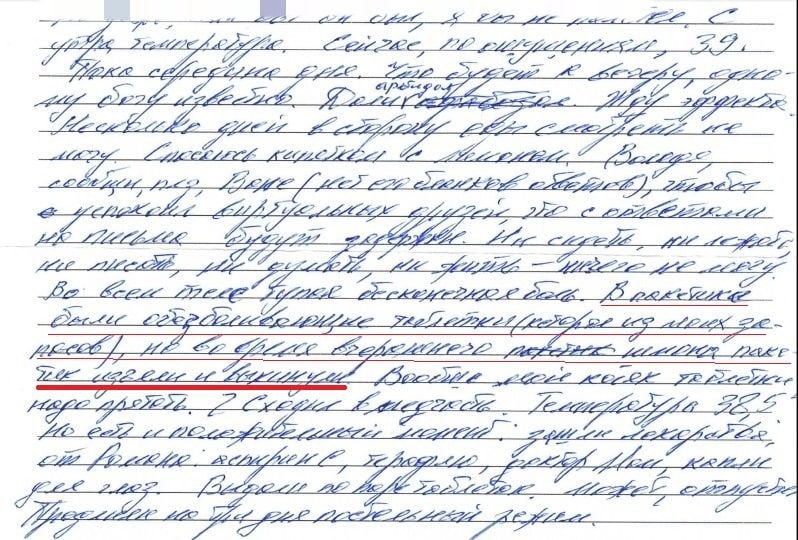 утра температура. Сейчас, по ощущениям, 39.
Пока середина дня. Что будет к вечеру, одно-
му богу известно. Дали арбидол. Жду эффекта.
Несколько дней в сторону еды смотреть не
могу. Спасаюсь кипятком с лимоном. (Володя,
сообщи, плз, Ване (нет его бланков ответов), чтобы
успокоил виртуальных друзей, что с ответами
на письма будут задержки. Ни сидеть, ни лежать,
ни писать, ни думать, ни жить – ничего не могу.
Во всем теле тупая бесконечная боль. В пакетике
были обезболивающие таблетки (которая из моих за-
пасов), но во время вчерашнего шмона паке-
тик изъяли и выкинули. Вообще, мой косяк таблетки
надо прятать. Сходил в медчасть. Температура 38,5
Но есть и положительный момент: зашли лекарства,
от Романа: аспирин С, терафлю, доктор Мом, капли
для глаз. Выдали по паре таблеток. Может, отпустит
Продлили на три дня постельный режим.